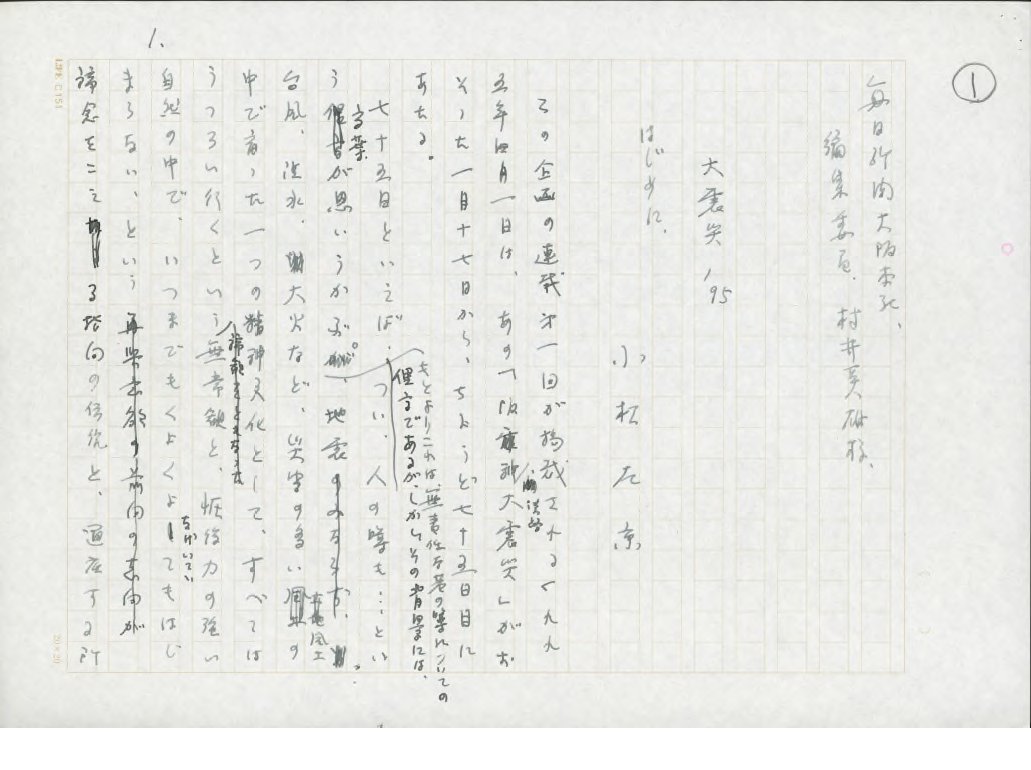 1.
①
毎日新聞大阪本社、
編集委員、村井英雄様、
大震災 '95
小松左京
はじめに、
この企画の連載第一回が掲載される九九
五年四月一日は、あの「阪神大震災」がお
そった一月十七日から、ちょうど七十五日目に
あたる。
七十五日といえば、つい、人の噂も…とい
う言葉が思いうかぶが、
もとよりこれは、無責任な巷の噂についての
俚言であるが、しかしその背景には、
台風、洪水、大火など、災害の多い風土の
中で育った一つの精神文化として、すべては
うつろい行くという無常観と、恢復力の強い
自然の中で、いつまでもくよくよしてもはじ
まらない、という
諦念をこえる
の伝統と、通底する所
コクヨ
20×20